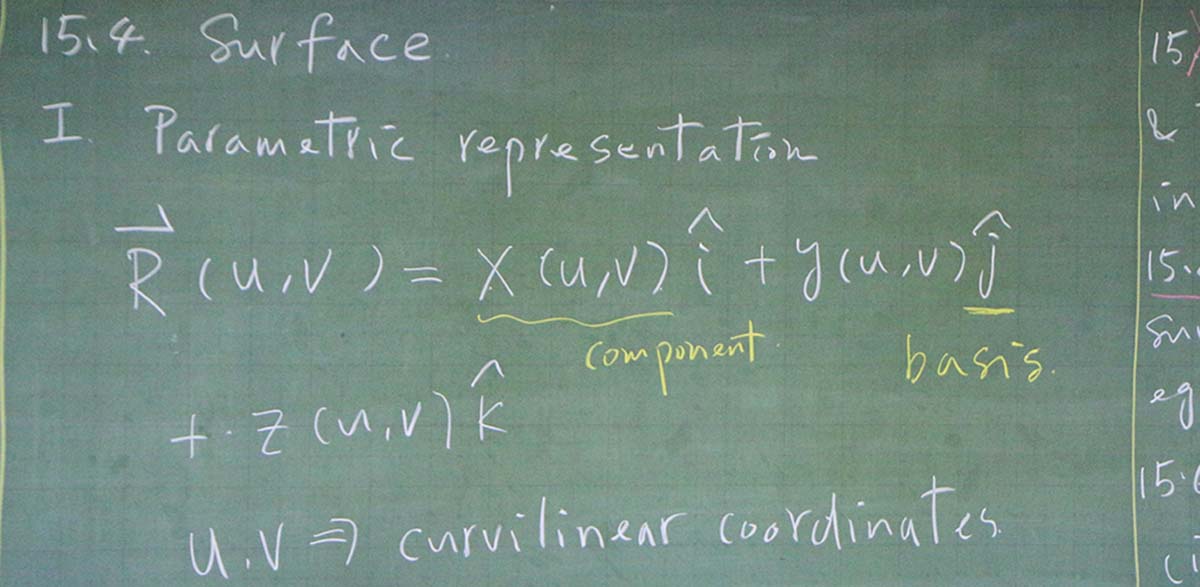 15.4. Surface.
I. Parametric representation
R⃗ (u,v) = x(u,v) î + y(u,v) ĵ
component. basis.
+ z(u,v) k̂
u.v ⇒ curvilinear coordinates.
15
&
in
15.
Sur
eg
15.6